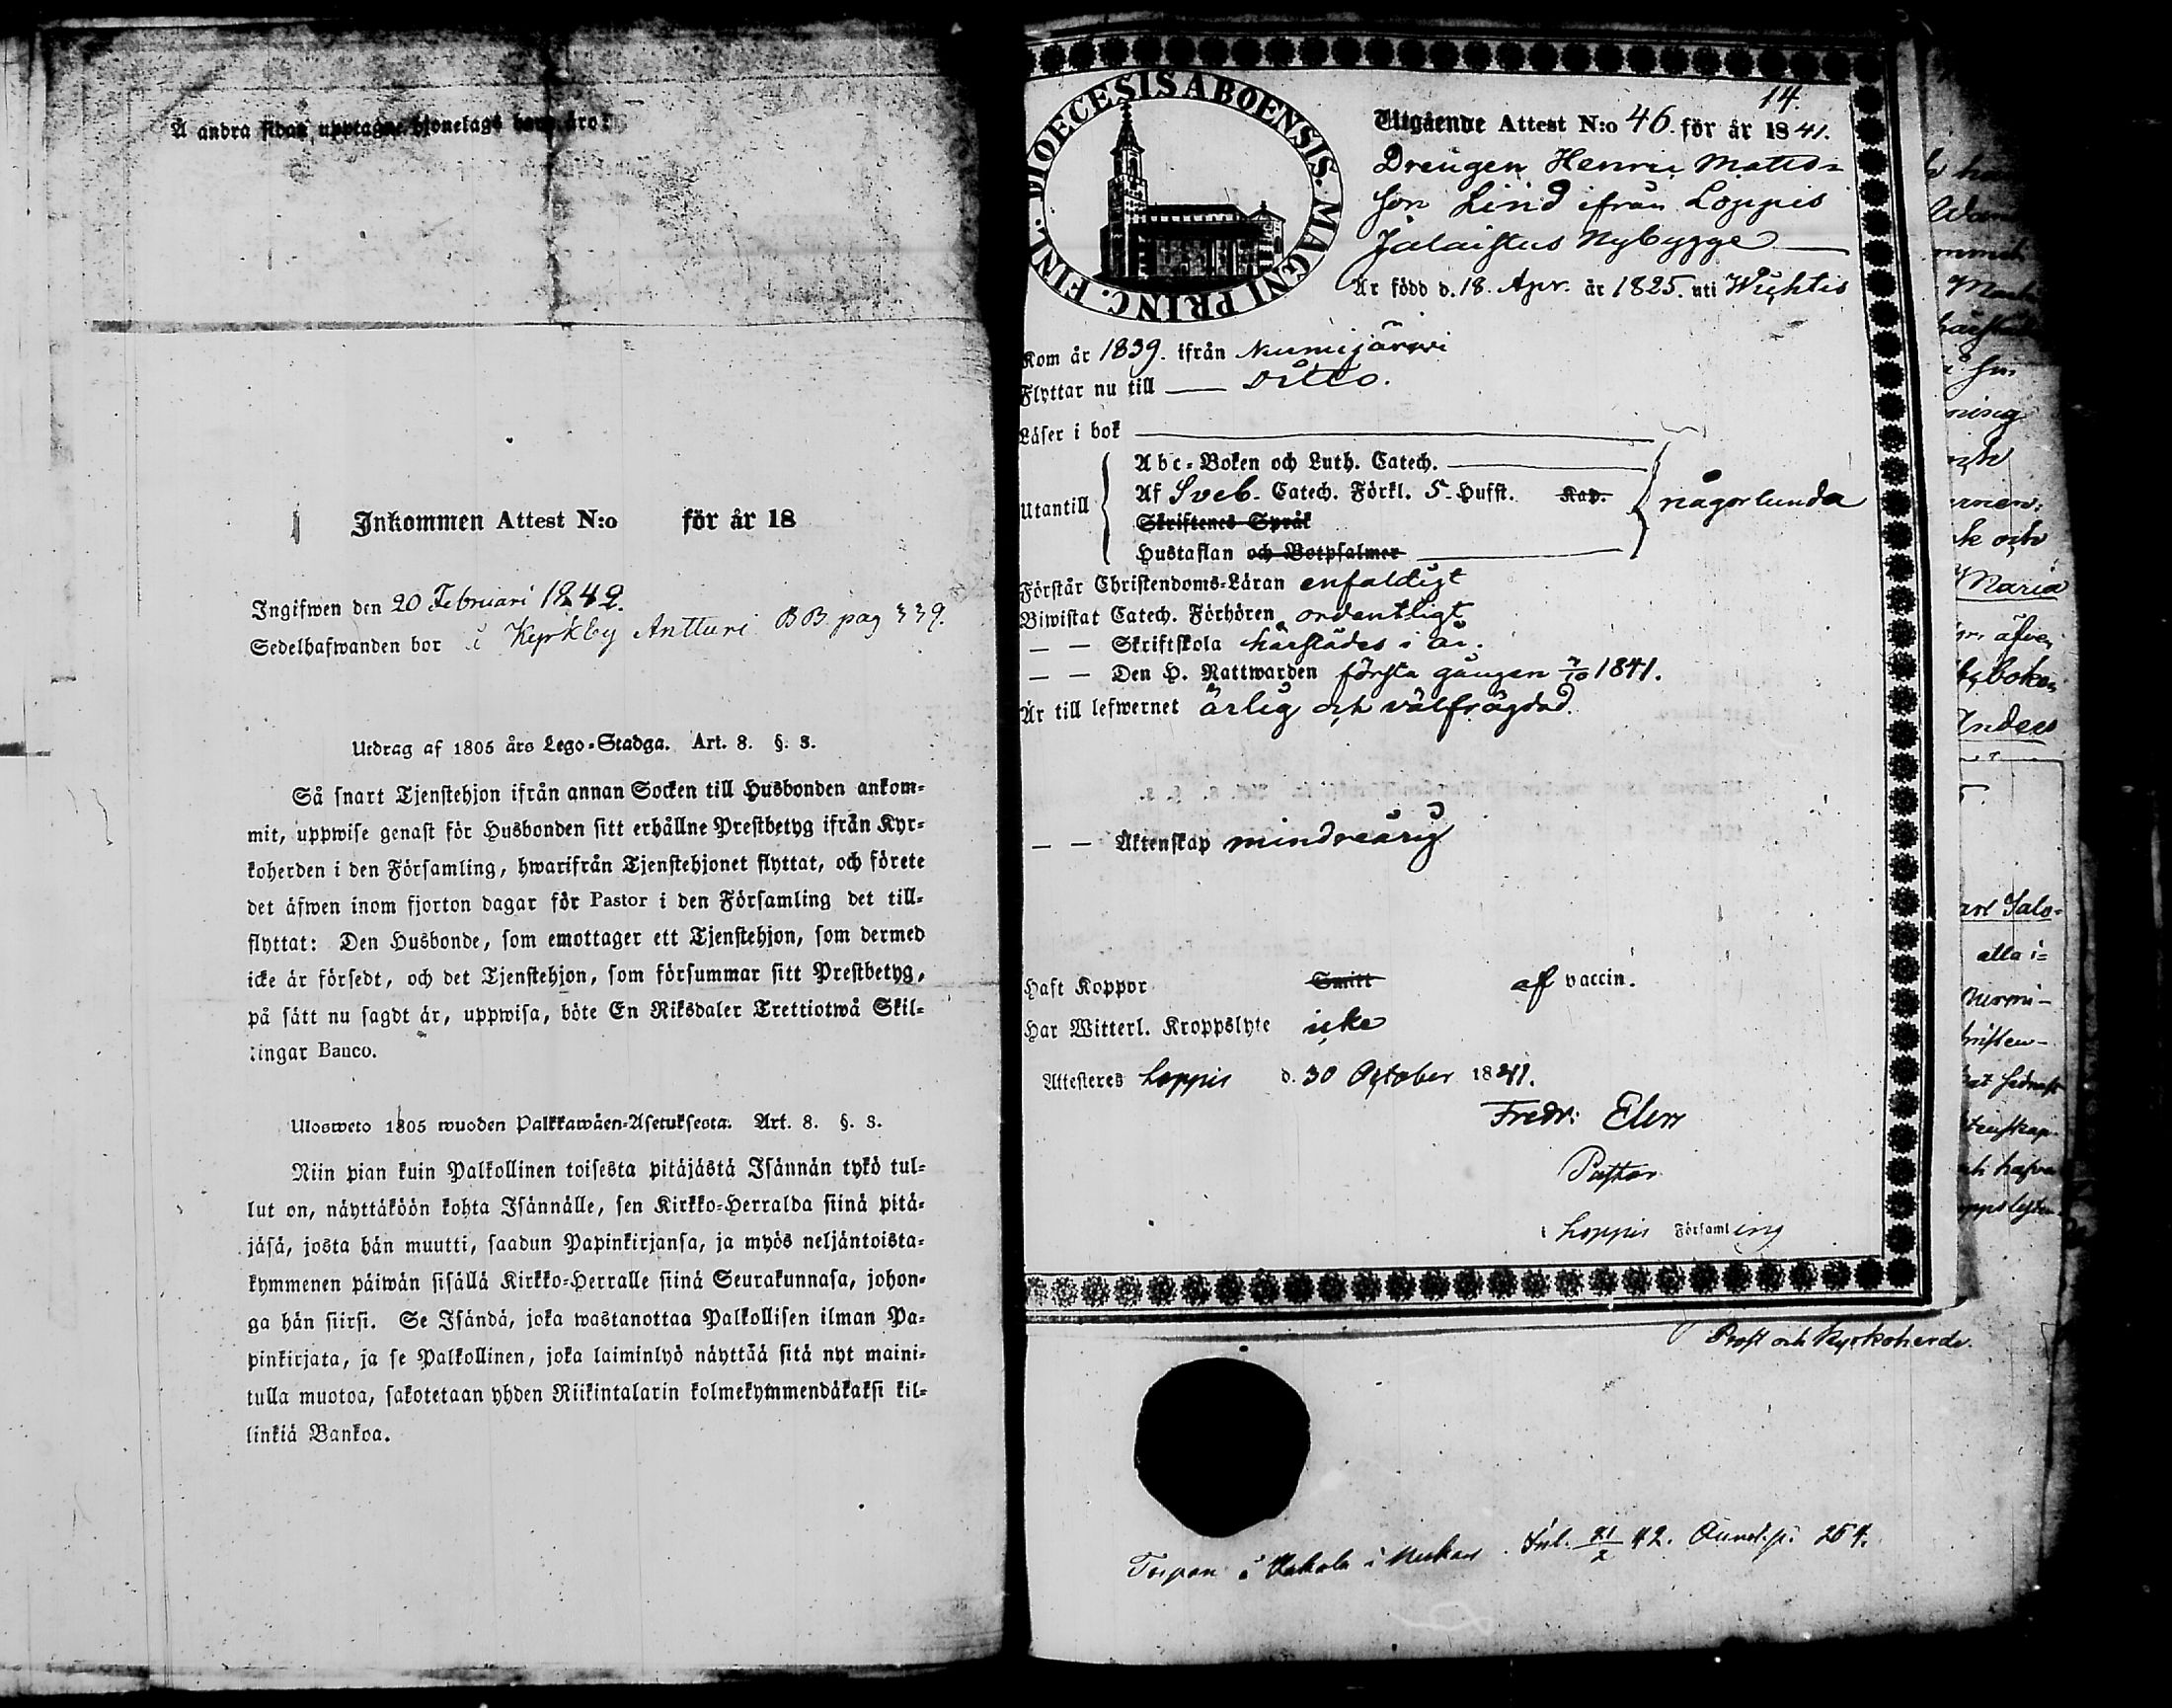 Å andra sidan upptagne hjonelags barn äro:
Inkommen Attest N:o för år 18
Ingifwen den 20 Februari 1842.
Sedelhafwanden bor i Kyrkby Antturi BB. pag 339.
Utdrag af 1805 års Lego-Stadga. Art. 8. §. 3.
Så snart Tjenstehjon ifrån annan Socken till Husbonden ankom-
mit, uppwise genast för Husbonden sitt erhållne Prestbetyg ifrån Kyr-
koherden i den Församling, hwarifrån Tjenstehjonet flyttat, och förete
det äfwen inom fjorton dagar för Pastor i den Församling det till-
flyttat: Den Husbonde, som emottager ett Tjenstehjon, som dermed
icke är försedt, och det Tjenstehjon, som försummar sitt Prestbetyg,
på sätt nu sagdt är, uppwisa, böte En Riksdaler Trettiotwå Skil-
lingar Banco.
Ulosweto 1805 wuoden Palkkawäen-Asetuksesta. Art. 8. §. 3.
Niin pian kuin Palkollinen toisesta pitäjästä Isännän tykö tul-
lut on, näyttäköön kohta Isännälle, sen Kirkko-Herralda siinä pitä-
jäsä, josta hän muutti, saadun Papinkirjansa, ja myös neljäntoista-
kymmenen päiwän sisällä Kirkko-Herralle siinä Seurakunnasa, johon-
ga hän siirsi. Se Isändä, joka wastanottaa Palkollisen ilman Pa-
pinkirjata, ja se Palkollinen, joka laiminlyö näyttää sitä nyt maini-
tulla muotoa, sakotetaan yhden Riikintalarin kolmekymmendäkaksi kil-
linkiä Bankoa.
14.
FINL. DIOECESIS ABOENSIS. MAGNI PRINC.
Utgående Attest N:o 46. för år 1841.
Drengen Henric Matts-
son Lind ifrån Loppis
Jalaistus Nybygge
Är född d. 18. Apr. år 1825. uti Wichtis
Kom år 1839. ifrån Nurmijärwi
Flyttar nu till Ditto.
Läser i bok
Abc-Boken och Luth. Catech.
Utantill Af Sveb. Catech. Förkl. 5. Hufst. Kap. någorlunda
Skriftenes Språk
Hustaflan och Botpsalmer
Förstår Christendoms-Läran enfaldigt
Biwistat Catech. Förhören ordentligt
— — Skriftskola härstädes i år.
— — Den H. Nattwarden första gången 7/10 1841.
Är till lefwernet ärlig och välfrägdad.
— — Äktenskap mindreårig
Haft Koppor Smitt af vaccin.
Har Witterl. Kroppslyte icke
Attesteres Loppis d. 30 October 1841.
Fredr: Elers
Pastor
i Loppis Församling
Prost och Kyrkoherde.
i Inl. 21/2 42. 254.